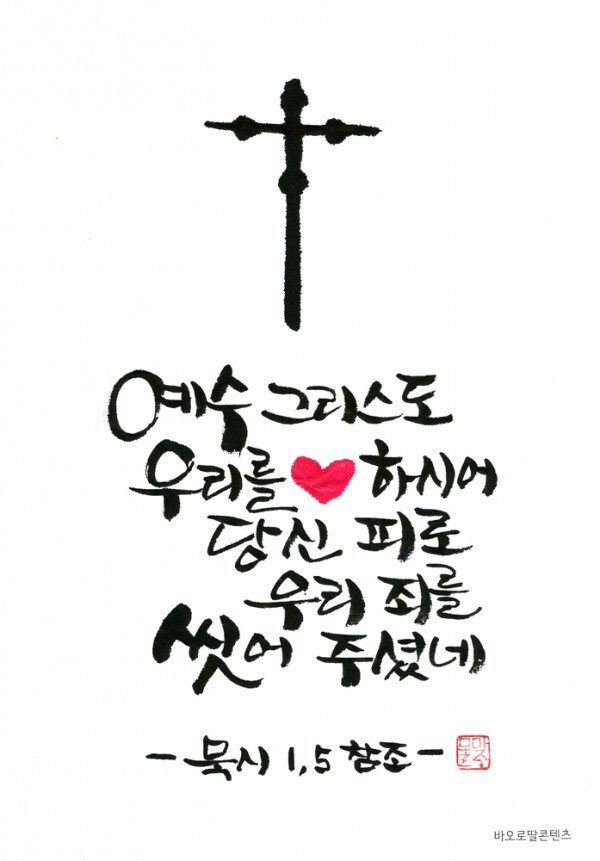 예수 그리스도
우리를 ♥ 하시어
당신 피로
우리 죄를
씻어 주셨네
- 묵시 1,5 참조 -
바오로딸콘텐츠